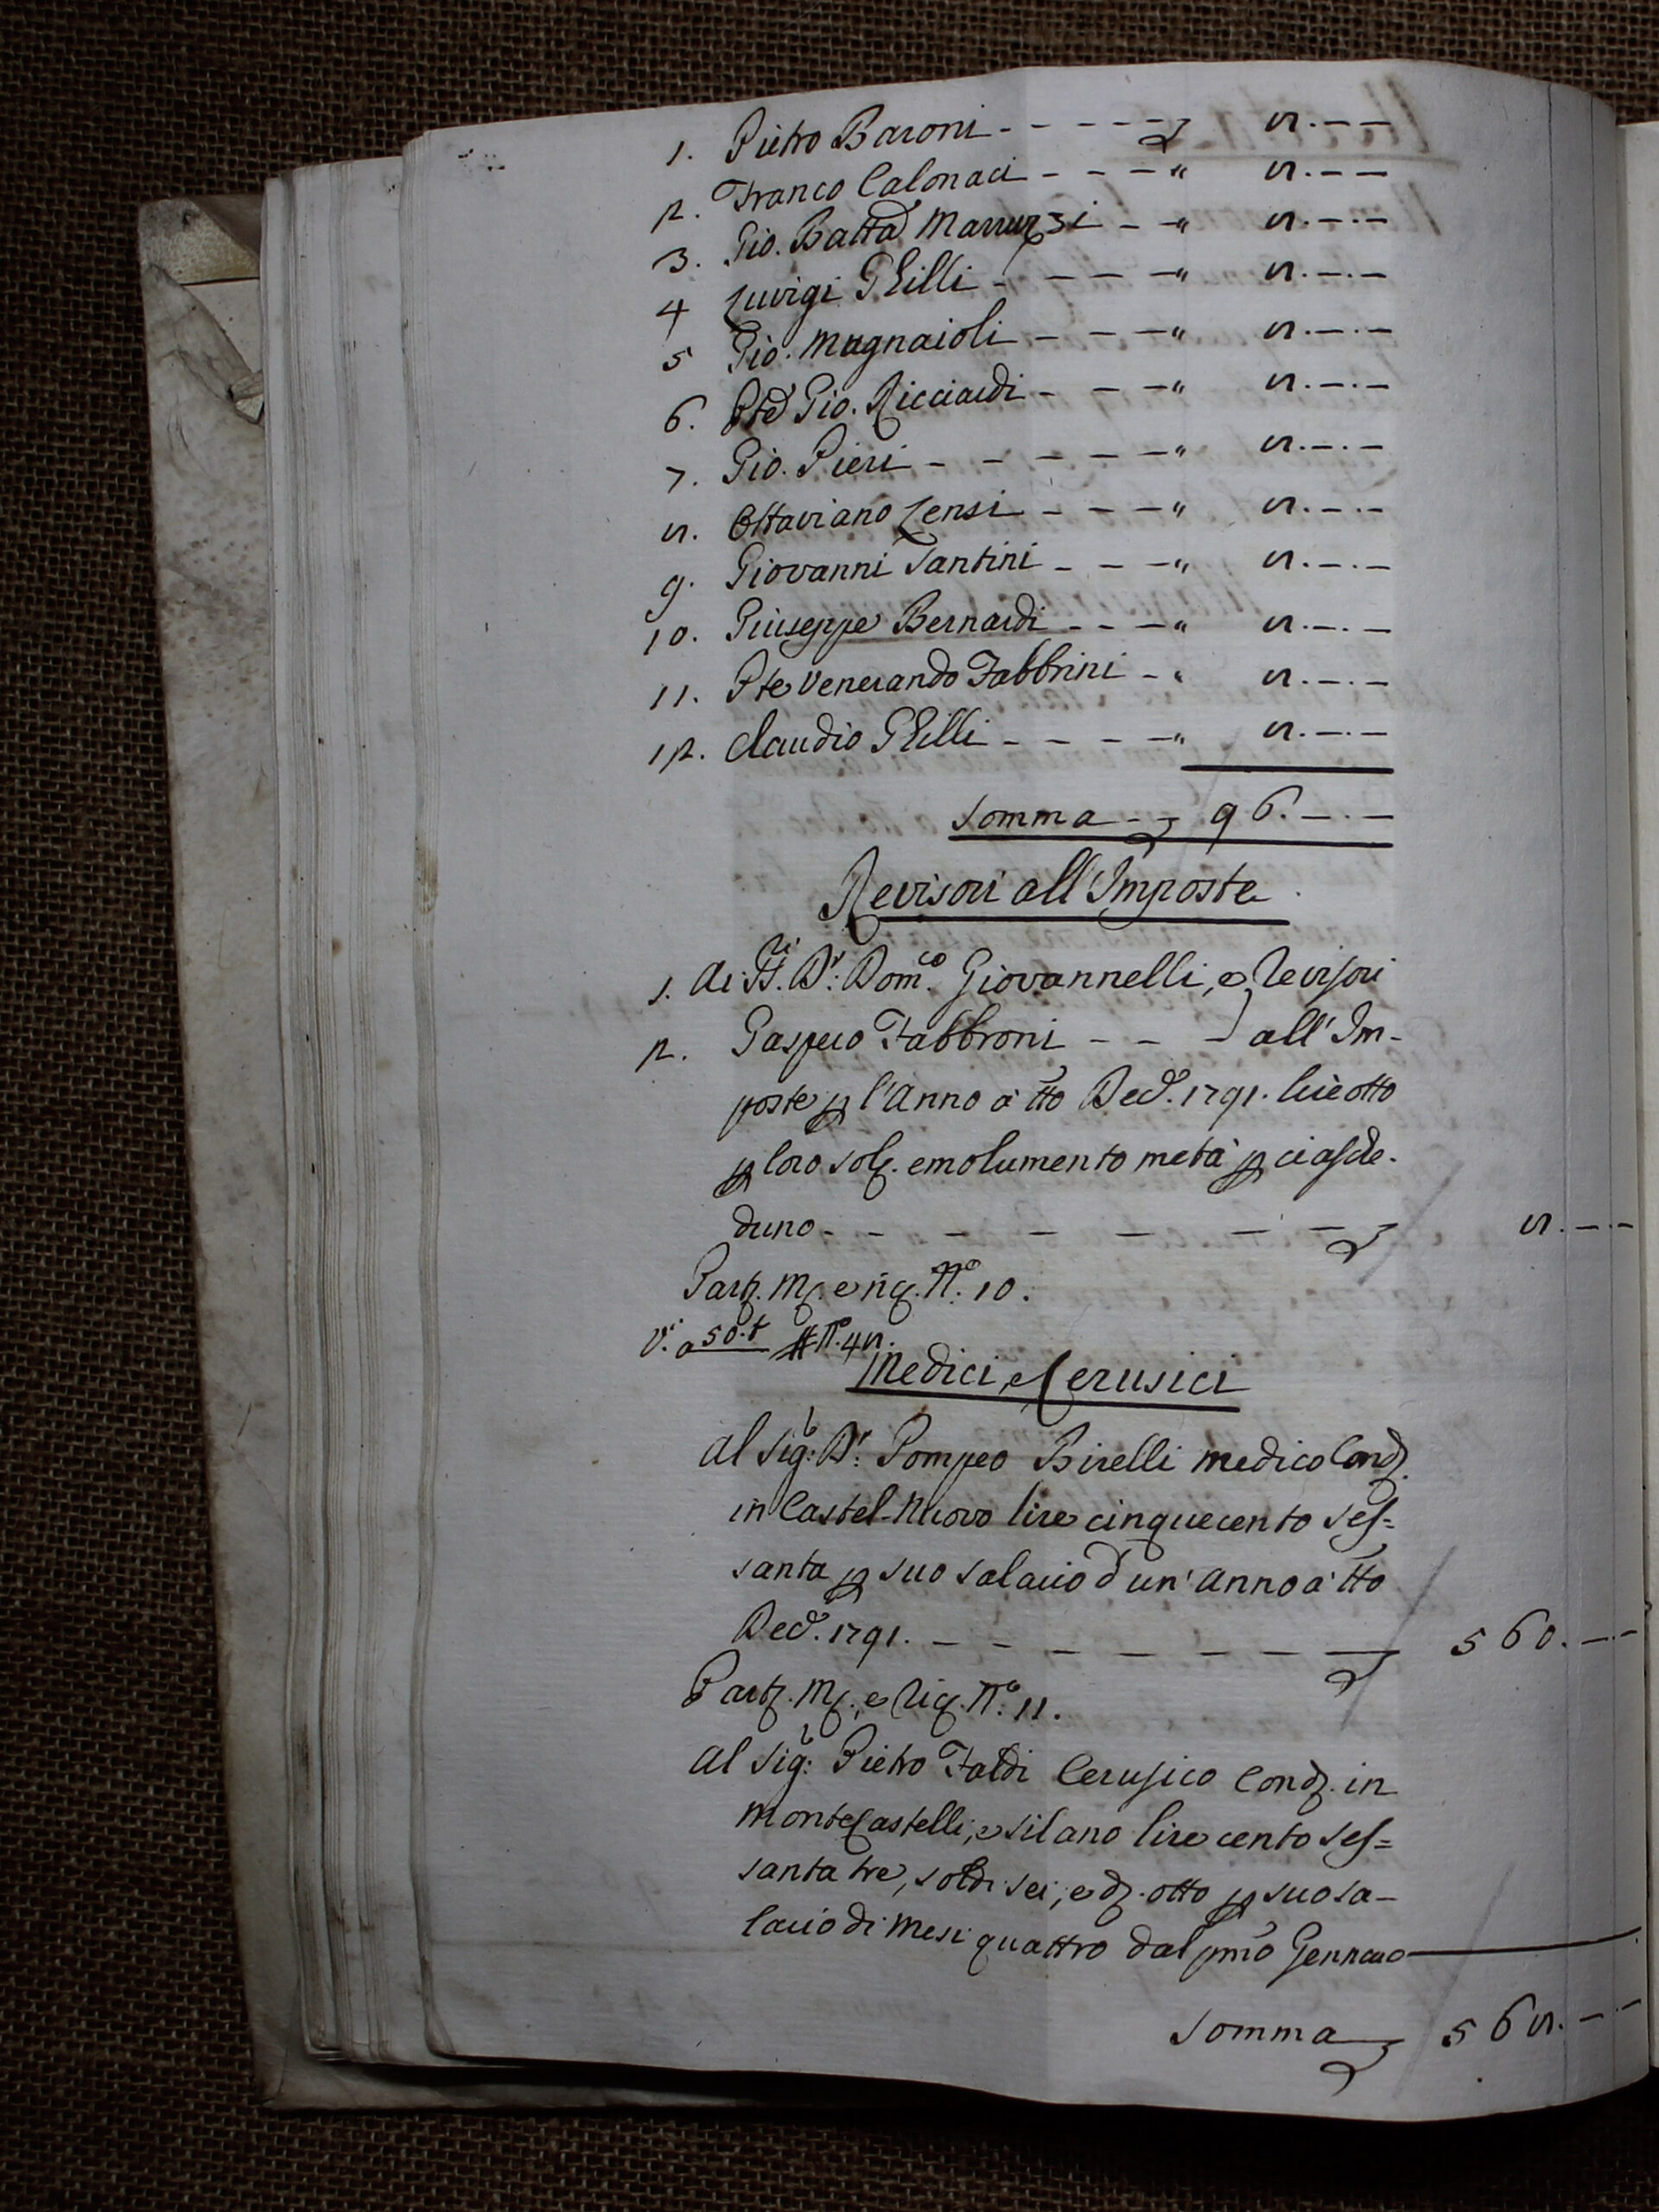 1. Pietro Baroni - - - - - 8. - -
2. Franco Calonaci - - - " 8. - -
3. Gio. Batta Marruzzi - - " 8. - . -
4 Luvigi Ghilli - - - - " 8. - . -
5 Gio. Mugnaioli - - - " 8. - . -
6. Pte Gio. Ricciardi - - - " 8. - . -
7. Gio. Pieri - - - - - " 8. - . -
8. Ottaviano Lensi - - - " 8. - . -
9. Giovanni Santini - - - " 8. - . -
10. Giuseppe Bernardi - - - " 8. - . -
11. Pte Venerando Fabbrini - " 8. - . -
12. Claudio Ghilli - - - - " 8. - . -
Somma - - 96. - . -
Revisori all'Imposte
1. Ai SS.ri Dr. Dom.co Giovannelli, e Revisori
2. Gaspero Fabbroni - - - all'Im-
poste p l'Anno a tto Dec. 1791. lire otto
p loro sol. emolumento metà p ciasche-
duno - - - - - - - 8. - -
Part. M. e riq. N.o 10.
V. a 50.t N.o 48.
Medici, e Cerusici
Al Sig.r Dr. Pompeo Birelli Medico Cond.
in Castel-Nuovo lire cinquecento ses=
santa p suo salario d'un'Anno a tto
Dec. 1791. - - - - - - - 560. - -
Part. M. e riq. N.o 11.
Al Sig.r Pietro Faldi Cerusico Cond. in
MonteCastelli, e Silano lire cento ses=
santa tre, soldi sei, e d. otto p suo sa-
lario di Mesi quattro dal pmo Gennaro
Somma 568. - -